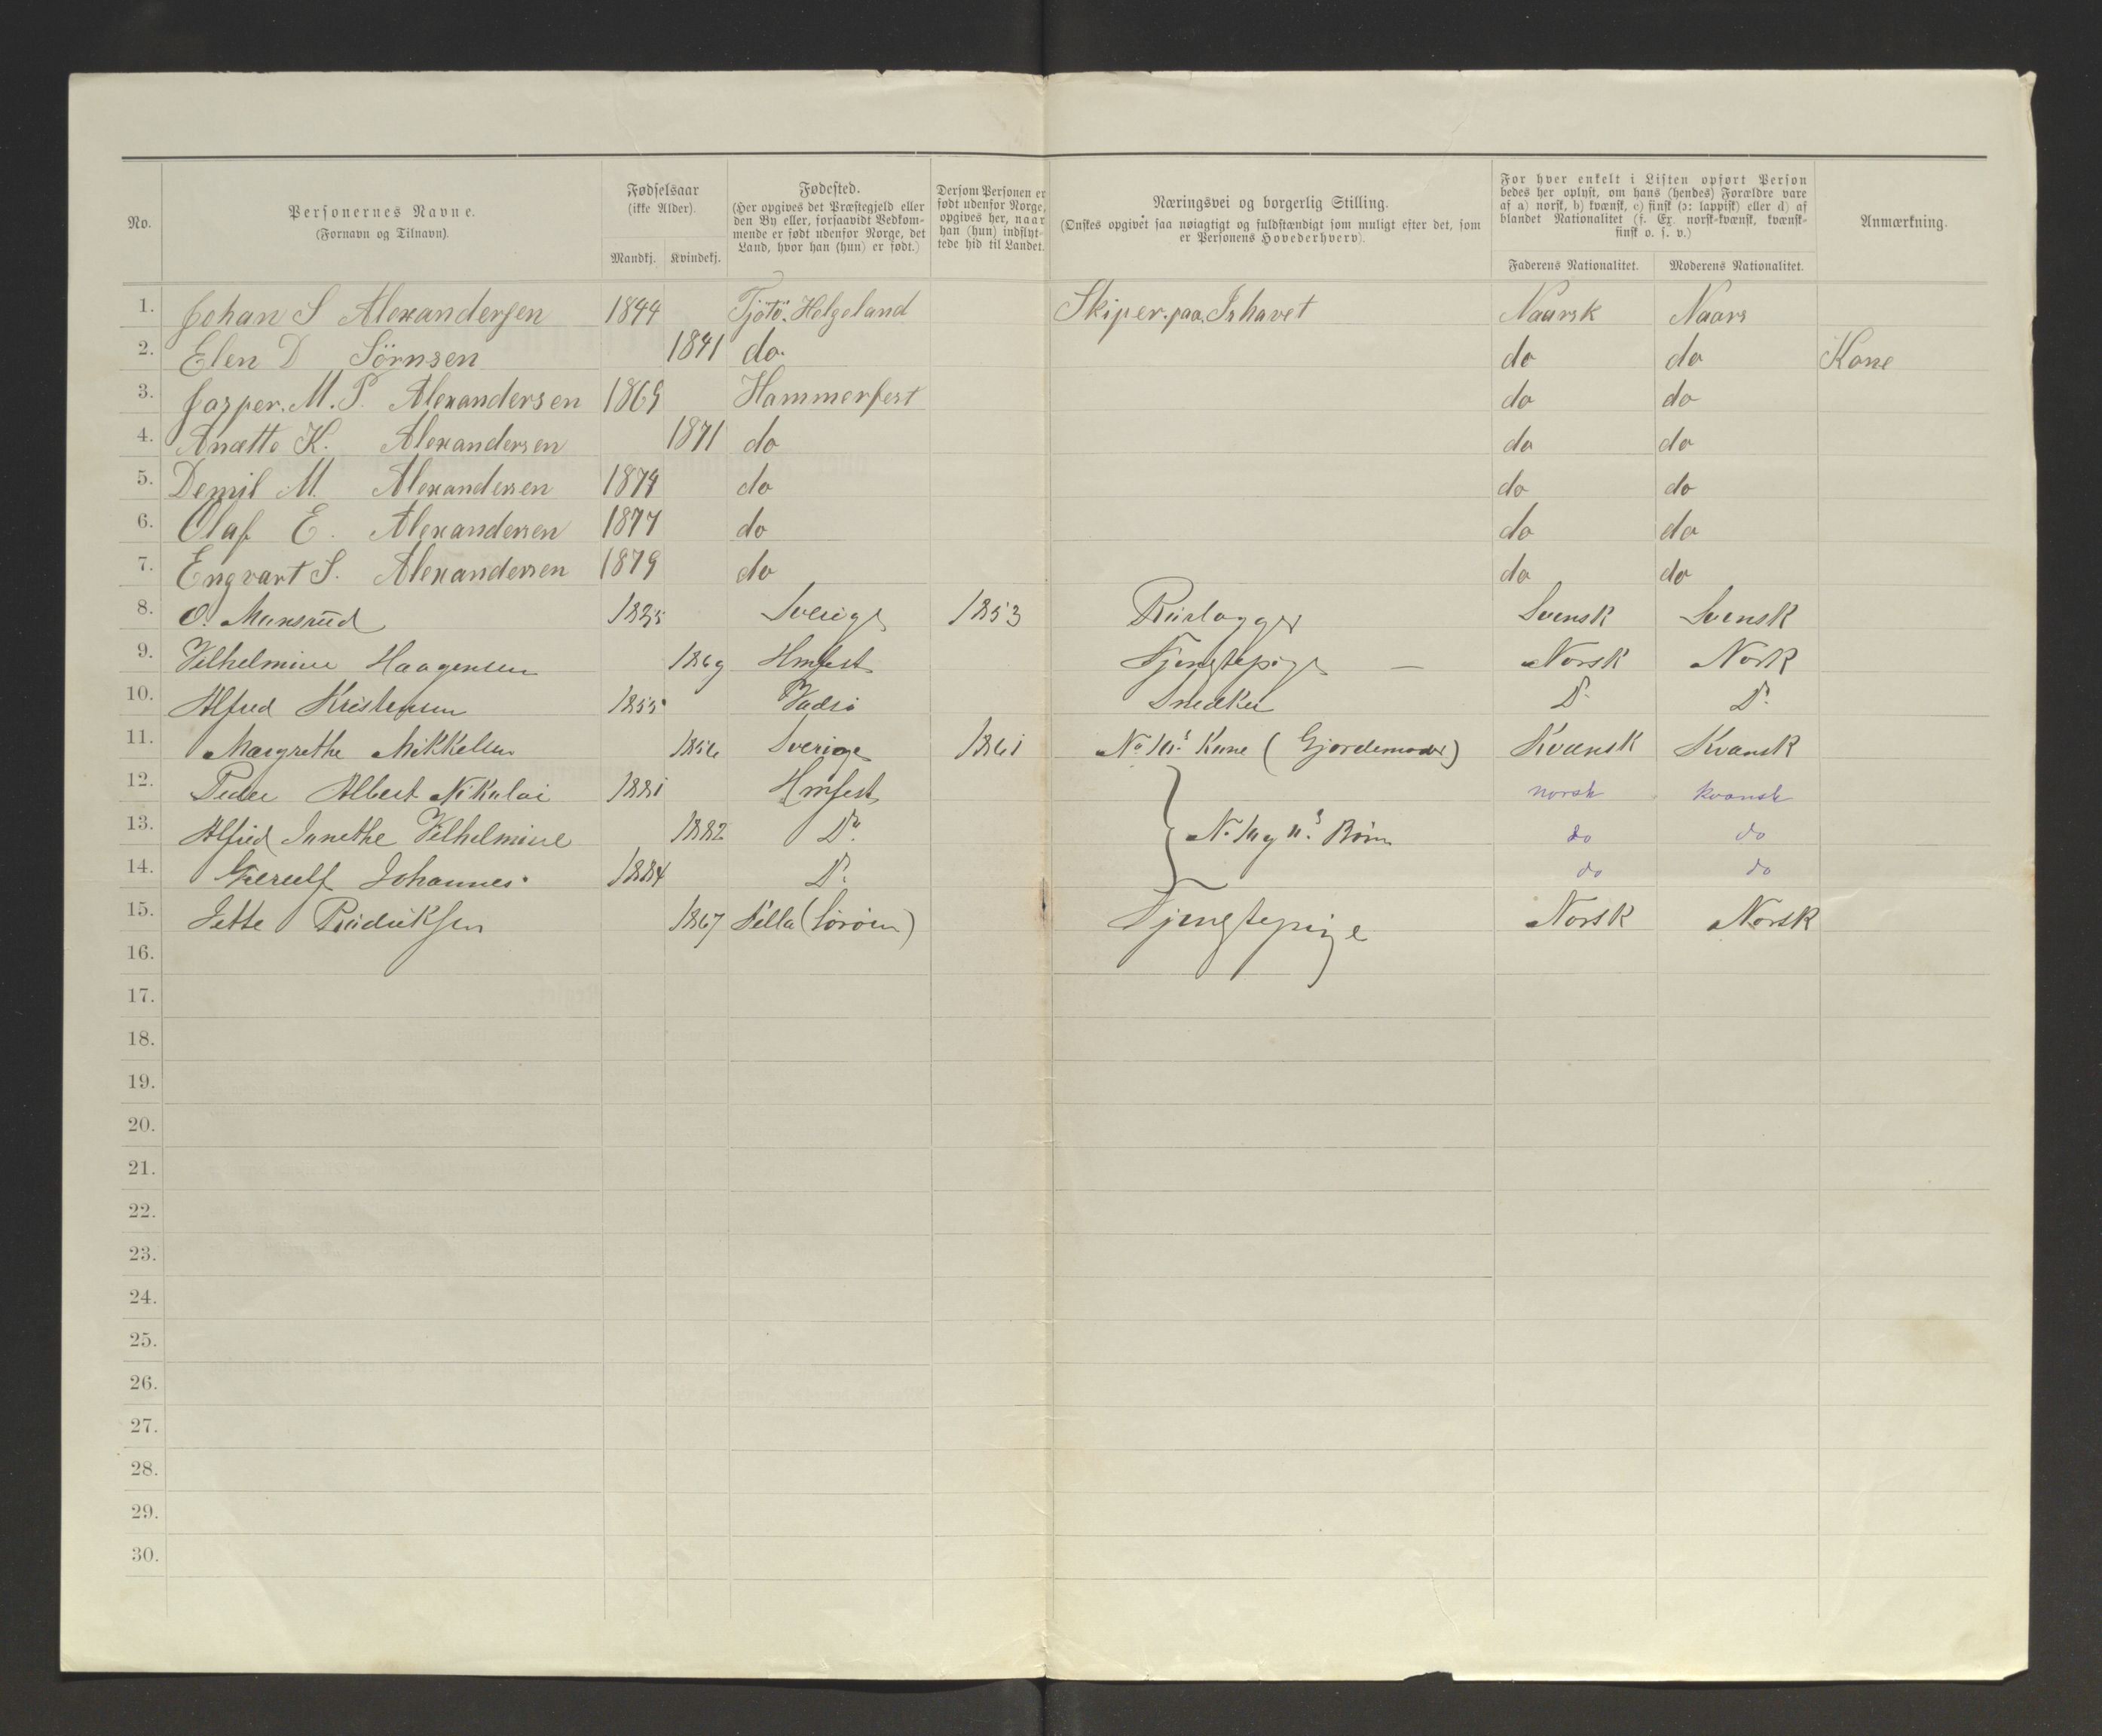 No.
Personernes Navne.
(Fornavn og Tilnavn).
Fødselsaar
(ikke Alder).
Mandkj. Kvindekj.
Fødested.
(Her opgives det Præstegjeld eller
den By eller, forsaavidt Vedkom-
mende er født udenfor Norge, det
Land, hvor han (hun) er født.)
Dersom Personen er
født udenfor Norge,
opgives her, naar
han (hun) indflyt-
tede hid til Landet.
Næringsvei og borgerlig Stilling.
(Ønskes opgivet saa nøiagtigt og fuldstændigt som muligt efter det, som
er Personens Hovederhverv).
For hver enkelt i Listen opført Person
bedes her oplyst, om hans (hendes) Forældre vare
af a) norsk, b) kvænsk, c) finsk (ɔ: lappisk) eller d) af
blandet Nationalitet (f. Ex. norsk-kvænsk, kvænsk-
finsk o. s. v.)
Faderens Nationalitet. Moderens Nationalitet.
Anmærkning.
1. Johan S Alexandersen 1844 Tjötö. Helgeland Skiper. paa. Ishavet Naarsk Naars
2. Elen D Sörnsen 1841 do. do do Kone
3. Jasper. M. P. Alexandersen 1869 Hammerfest do do
4. Anætte K. Alexandersen 1871 do do do
5. Demil M. Alexandersen 1874 do do do
6. Olaf E. Alexandersen 1877 do do do
7. Engvart S. Alexandersen 1879 do do do
8. O. Munsrud 1835 Sverige 1853 Svensk Svensk
9. Vilhelmine Haagensen 1869 Hmfest Tjenstepige — Norsk Norsk
10. Alfred Kristensen 1855 Vadsö Snedker Do Do
11. Margrethe Mikkelsen 1856 Sverige 1861 No 10s Kone (Gjordemoder) Kvænsk Kvænsk
12. Peder Albert Nikolai 1881 Hmfest norsk kvænsk
13. Alfred Janethe Vilhelmine 1882 Do. No 10 og 11s Börn do do
14. Johannes 1884 Do. do do
15. Jette Fredriksen 1867 (Sörøen) Tjenstepige Norsk Norsk
16.
17.
18.
19.
20.
21.
22.
23.
24.
25.
26.
27.
28.
29.
30.